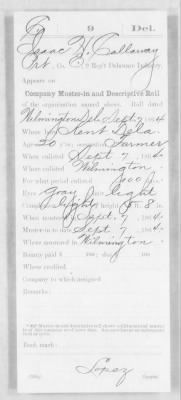 C 9 Del.
Isaac H. Callaway
Pvt., Co. 9 Reg't Delaware Infantry.
Appears on
Company Muster-in and Descriptive Roll
of the organization named above. Roll dated
Wilmington Del. Sept. 7, 1864
Where born Kent Co. Dela.
Age 20 y'rs; occupation Farmer
When enlisted Sept. 7, 1864.
Where enlisted Wilmington.
For what period enlisted 100
Eyes Gray; hair light
Complexion light; 8 in.
When mustered in Sept. 7, 1864.
Muster-in to date Sept. 7, 1864.
Where mustered in Wilmington.
Bounty paid $ 100; due $ 100
Where credited
Company to which assigned
Remarks:
Book mark:
Lopez
Copyist.